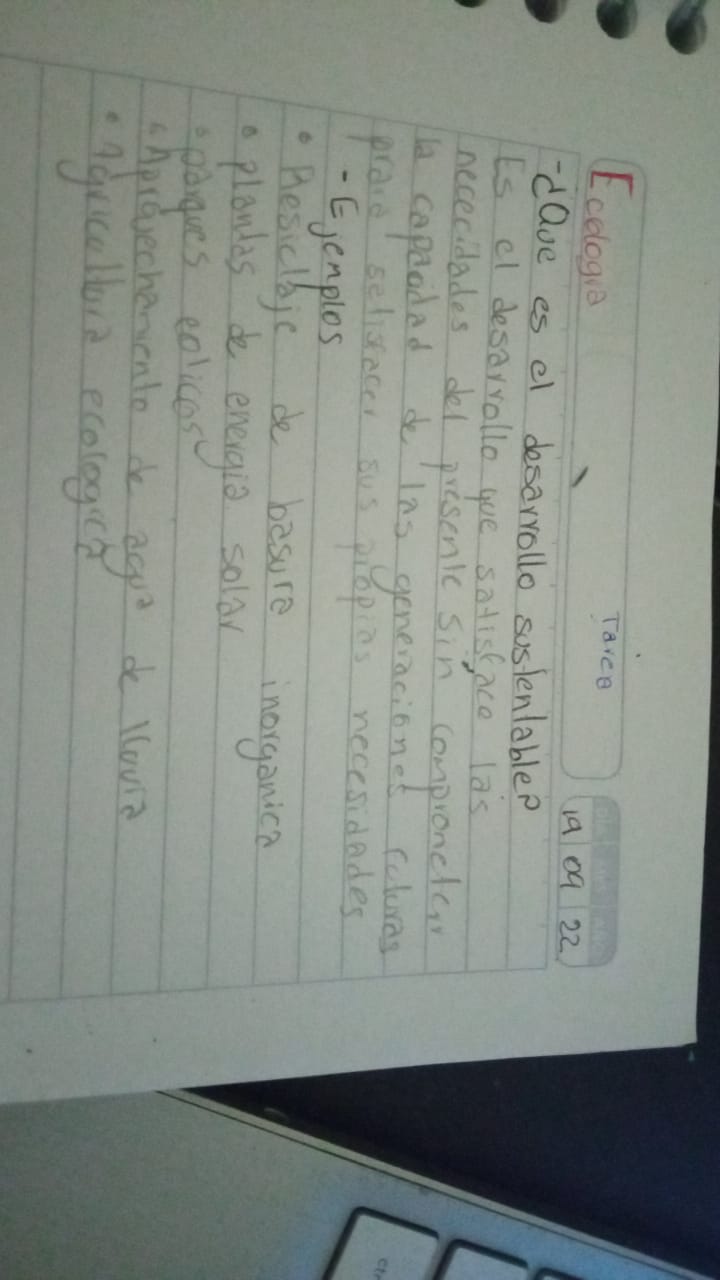 Ecologia
Tarea
19 09 22
-¿Que es el desarrollo sustentable?
Es el desarrollo que satisface las
nececidades del presente sin comprometer
la capacidad de las generaciones futuras
praia setisfacer sus propias necesidades
- Ejemplos
• Resiclaje de basura inorganica
• plantas de energia solar
• parques eolicos
• Aprovechamiento de agua de lluvia
• Agricultura ecologica